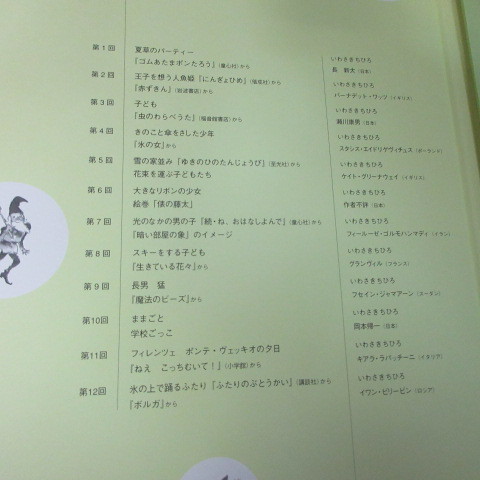 第1回 夏草のパーティー いわさきちひろ
『ゴムあたまポンたろう』(童心社)から 長 新太(日本)
第2回 王子を想う人魚姫『にんぎょひめ』(偕成社)から いわさきちひろ
『赤ずきん』(岩波書店)から バーナデット・ワッツ(イギリス)
第3回 子ども いわさきちひろ
『虫のわらべうた』(福音館書店)から 瀬川康男(日本)
第4回 きのこと傘をさした少年 いわさきちひろ
『氷の女』から スタシス・エイドリゲヴィチュス(ポーランド)
第5回 雪の家並み『ゆきのひのたんじょうび』(至光社)から いわさきちひろ
花束を運ぶ子どもたち ケイト・グリーナウェイ(イギリス)
第6回 大きなリボンの少女 いわさきちひろ
絵巻「俵の藤太」 作者不詳(日本)
第7回 光のなかの男の子『続・ね、おはなしよんで』(童心社)から いわさきちひろ
「暗い部屋の象」のイメージ フィールーゼ・ゴルモハンマディ(イラン)
第8回 スキーをする子ども いわさきちひろ
『生きている花々』から グランヴィル(フランス)
第9回 長男 猛 いわさきちひろ
『魔法のビーズ』から フセイン・ジャマアーン(スーダン)
第10回 ままごと いわさきちひろ
学校ごっこ 岡本帰一(日本)
第11回 フィレンツェ ポンテ・ヴェッキオの夕日 いわさきちひろ
『ねえ こっちむいて!』(小学館)から キアラ・ラパッチーニ(イタリア)
第12回 氷の上で踊るふたり『ふたりのぶとうかい』(講談社)から いわさきちひろ
『ボルガ』から イワン・ビリービン(ロシア)